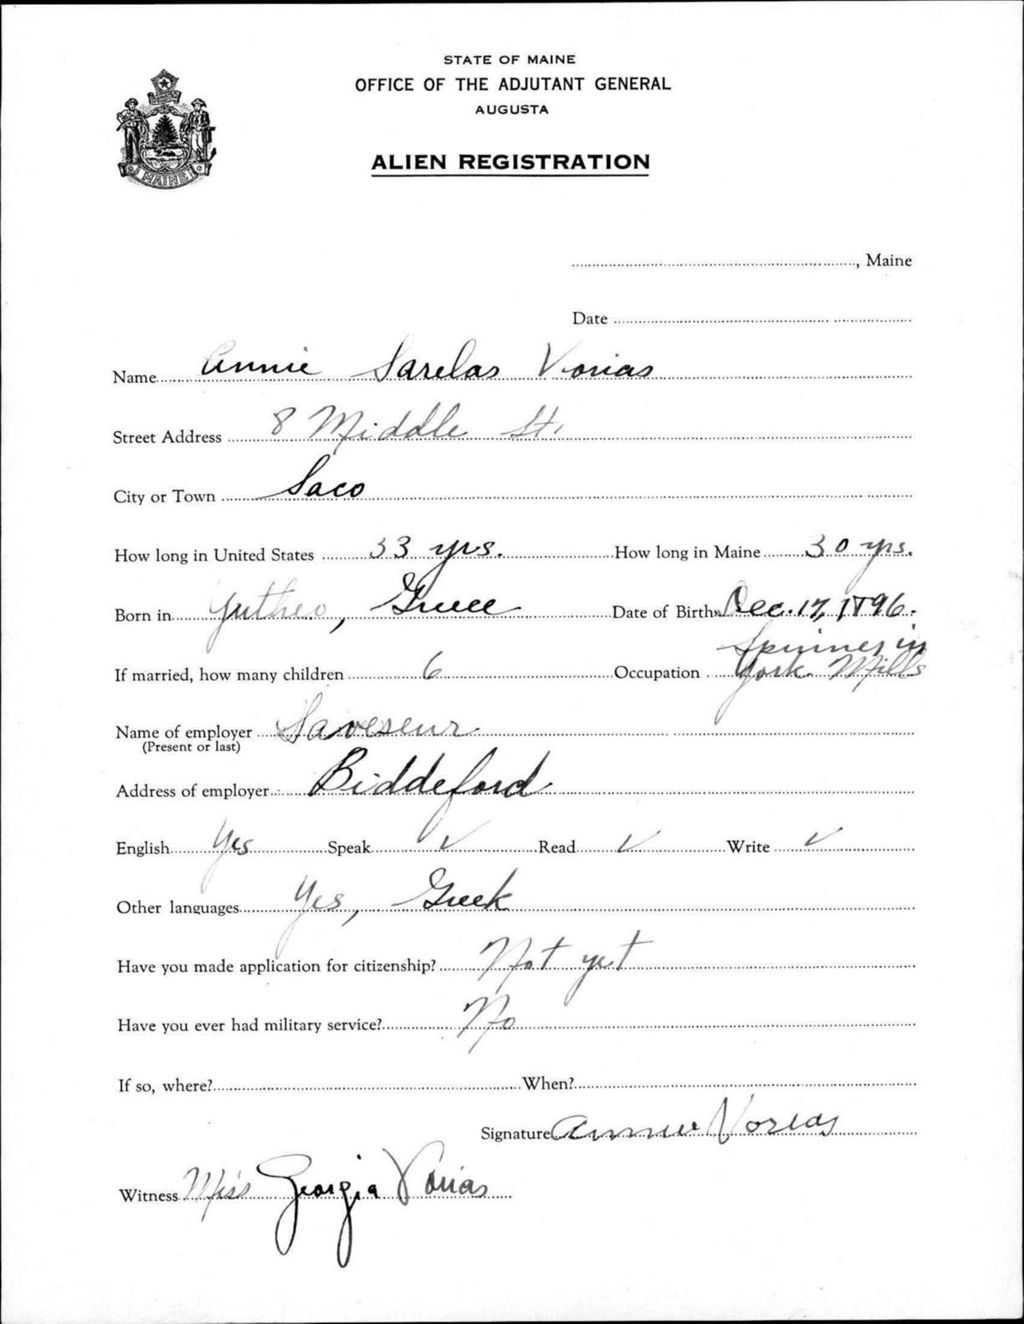 STATE OF MAINE
OFFICE OF THE ADJUTANT GENERAL
AUGUSTA
ALIEN REGISTRATION
MAINE
, Maine
Date
Name Annie Sarelas Vorias
Street Address 8 Middle St.
City or Town Saco
How long in United States 33 yrs. How long in Maine 30 yrs.
Born in Greece Date of Birth Dec. 17, 1896.
Spinner in
If married, how many children 6 Occupation York Mills
Name of employer
(Present or last)
Address of employer Biddeford
English Yes Speak ✓ Read ✓ Write ✓
Other languages Yes, Greek
Have you made application for citizenship? Not yet
Have you ever had military service? No
If so, where? When?
Signature Annie Vorias
Witness Miss Georgia Vorias